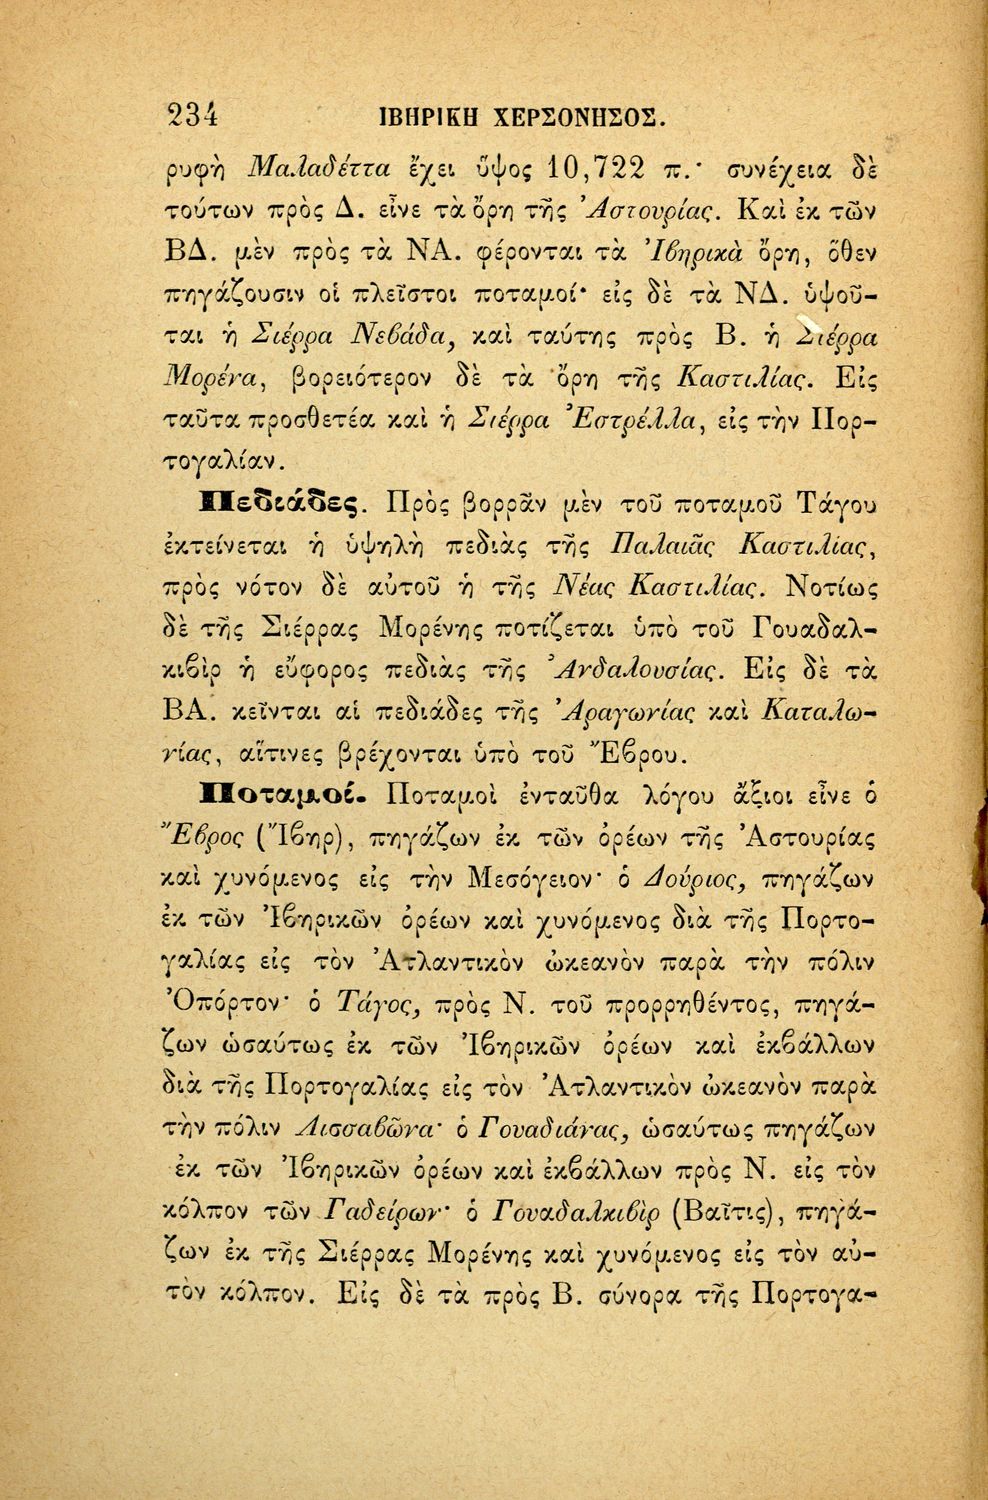 234 ΙΒΗΡΙΚΗ ΧΕΡΣΟΝΗΣΟΣ.
ρυφὴ Μαλαδέττα ἔχει ὕψος 10,722 π.· συνέχεια δὲ
τούτων πρὸς Δ. εἶνε τὰ ὄρη τῆς Ἀστουρίας. Καὶ ἐκ τῶν
ΒΔ. μὲν πρὸς τὰ ΝΑ. φέρονται τὰ Ἰβηρικὰ ὄρη, ὅθεν
πηγάζουσιν οἱ πλεῖστοι ποταμοί· εἰς δὲ τὰ ΝΔ. ὑψοῦ-
ται ἡ Σιέρρα Νεβάδα, καὶ ταύτης πρὸς Β. ἡ Σιέρρα
Μορένα, βορειότερον δὲ τὰ ὄρη τῆς Καστιλίας. Εἰς
ταῦτα προσθετέα καὶ ἡ Σιέρρα Ἐστρέλλα, εἰς τὴν Πορ-
τογαλίαν.
Πεδιάδες. Πρὸς βορρᾶν μὲν τοῦ ποταμοῦ Τάγου
ἐκτείνεται ἡ ὑψηλὴ πεδιὰς τῆς Παλαιᾶς Καστιλίας,
πρὸς νότον δὲ αὐτοῦ ἡ τῆς Νέας Καστιλίας. Νοτίως
δὲ τῆς Σιέρρας Μορένης ποτίζεται ὑπὸ τοῦ Γουαδαλ-
κιβὶρ ἡ εὔφορος πεδιὰς τῆς Ἀνδαλουσίας. Εἰς δὲ τὰ
ΒΑ. κεῖνται αἱ πεδιάδες τῆς Ἀραγωνίας καὶ Καταλω-
νίας, αἵτινες βρέχονται ὑπὸ τοῦ Ἔβρου.
Ποταμοί. Ποταμοὶ ἐνταῦθα λόγου ἄξιοι εἶνε ὁ
Ἔβρος (Ἴβηρ), πηγάζων ἐκ τῶν ὀρέων τῆς Ἀστουρίας
καὶ χυνόμενος εἰς τὴν Μεσόγειον· ὁ Δούριος, πηγάζων
ἐκ τῶν Ἰβηρικῶν ὀρέων καὶ χυνόμενος διὰ τῆς Πορτο-
γαλίας εἰς τὸν Ἀτλαντικὸν ὠκεανὸν παρὰ τὴν πόλιν
Ὀπόρτον· ὁ Τάγος, πρὸς Ν. τοῦ προρρηθέντος, πηγά-
ζων ὡσαύτως ἐκ τῶν Ἰβηρικῶν ὀρέων καὶ ἐκβάλλων
διὰ τῆς Πορτογαλίας εἰς τὸν Ἀτλαντικὸν ὠκεανὸν παρὰ
τὴν πόλιν Λισσαβῶνα· ὁ Γουαδιάνας, ὡσαύτως πηγάζων
ἐκ τῶν Ἰβηρικῶν ὀρέων καὶ ἐκβάλλων πρὸς Ν. εἰς τὸν
κόλπον τῶν Γαδείρων· ὁ Γουαδαλκιβὶρ (Βαῖτις), πηγά-
ζων ἐκ τῆς Σιέρρας Μορένης καὶ χυνόμενος εἰς τὸν αὐ-
τὸν κόλπον. Εἰς δὲ τὰ πρὸς Β. σύνορα τῆς Πορτογα-